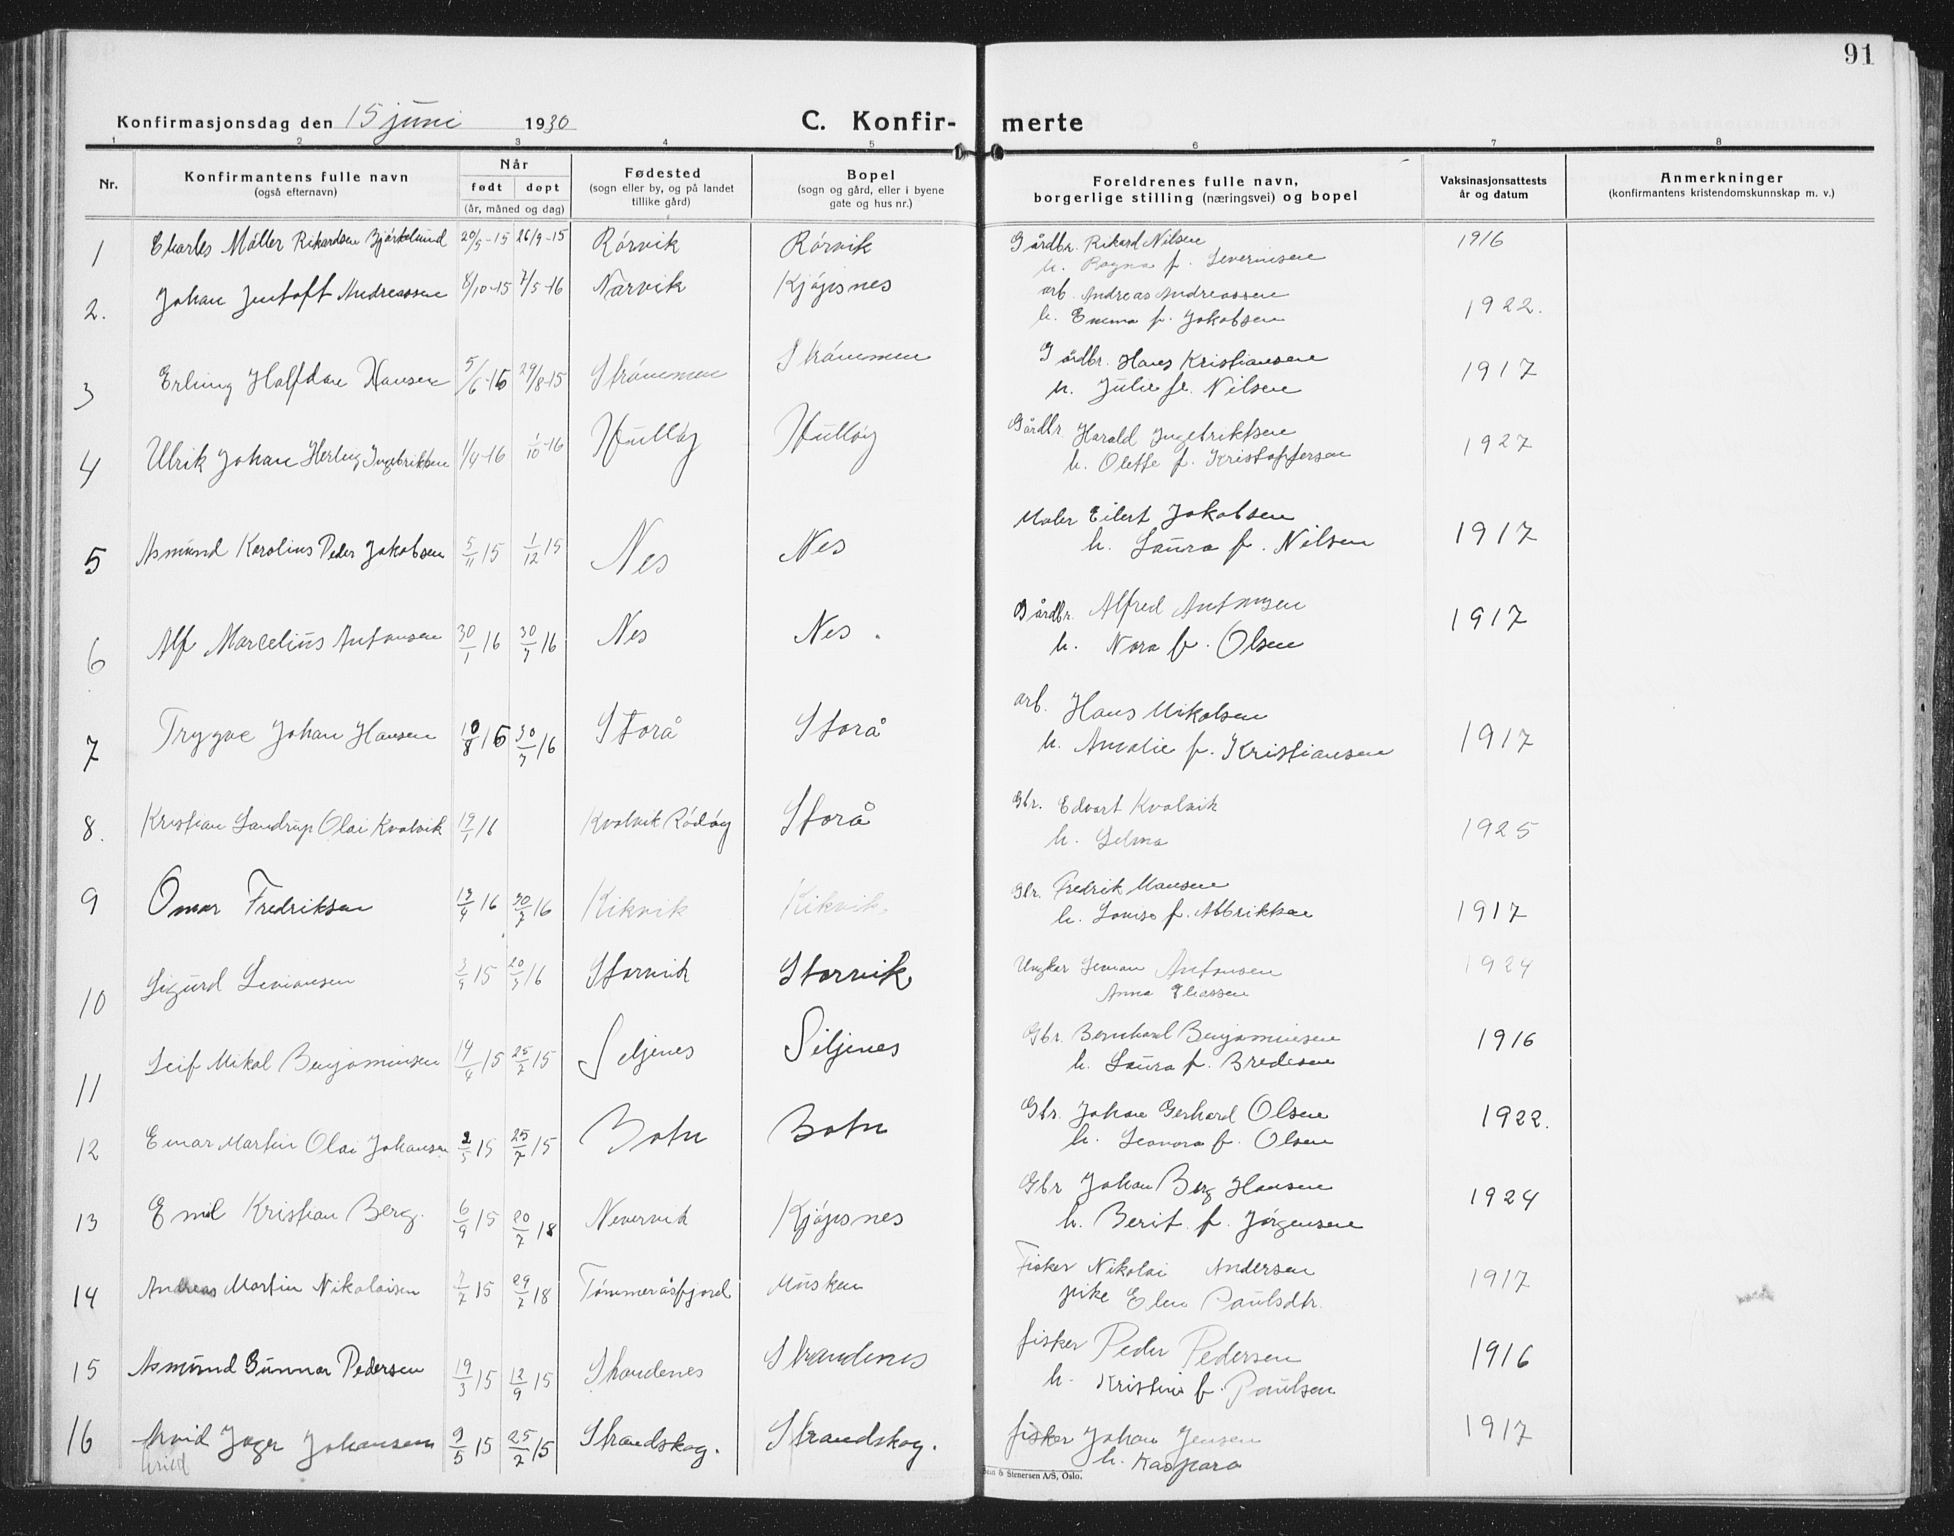 91
Konfirmasjonsdag den 15 juni 1930
C. Konfir- merte
1 2 3 4 5 6 7 8
Nr.
Konfirmantens fulle navn
(også efternavn)
Når
født døpt
(år, måned og dag)
Fødested
(sogn eller by, og på landet
tillike gård)
Bopel
(sogn og gård, eller i byene
gate og hus nr.)
Foreldrenes fulle navn,
borgerlige stilling (næringsvei) og bopel
Vaksinasjonsattests
år og datum
Anmerkninger
(konfirmantens kristendomskunnskap m. v.)
1 Charles Møller Rikardsen Bjørkelund 20/5-15 26/9-15 Rørvik Rørvik Gårdbr. Rikard Nilsen 1916
h. Ragna f. Severinsen
2. Johan Jentoft Andreassen 8/10-15 7/5-16 Narvik Kjøpsnes arb. Andreas Andreassen 1922.
h. Emma f. Jakobsen
3 Erling Halfdan Hansen 5/6-16 29/8-15 Strømmen Strømmen Gårdbr. Hans Kristiansen 1917
h. Julie f. Nilsen
4 Ulrik Johan Herlug Ingebriktsen 1/4-16 1/10-16 Hulløy Hulløy Gårdbr Harald Ingebriktsen 1927
h. Olette f. Kristoffersen
5 Asmund Karolius Peder Jakobsen 5/11 15 1/12 15 Nes Nes Maler Eilert Jakobsen 1917
h. Laura f. Nilsen
6 Alf Marcelius Antonsen 30/1 16 30/7 16 Nes Nes. Gårdbr. Alfred Antonsen 1917
h. Nora f. Olsen
7 Trygve Johan Hansen 10/8 16 30/7 16 Storå Storå arb. Hans Mikalsen 1917
h. Amalie f. Kristiansen
8. Kristian Sandrup Olai Kvalvik 19/1 16 Kvalvik Rødøy Storå Gbr. Edvart Kvalvik 1925
h. Selma
9 Omar Fredriksen 13/4 16 30/7 16 Kikvik Kikvik. Gbr. Fredrik Hansen 1917
h. Louise f. Albrikksen
10 Sigurd Simonsen 3/9 15 20/5 16 Storvik Storvik Ungkar Simon Antonsen 1924
Anna Eliassen
11 Leif Mikal Benjaminsen 14/4 15 25/7 15 Siljenes Siljenes Gbr. Bernhard Benjaminsen 1916
h. Laura f. Bredesen
12 Einar Martin Olai Johansen 2/5 15 25/7 15 Botn Botn Gbr. Johan Gerhard Olsen 1922.
h. Leonora f. Olsen
13 Emil Kristian Berg. 6/9 15 20/7 18 Nevervik Kjøpsnes Gbr Johan Berg Hansen 1924
h. Berit f. Jørgensen
14 Andreas Martin Nikolaisen 7/7 15 29/7 18 Tømmeråsfjord Musken Fisker Nikolai Andersen 1917
pike Elen Paulsdtr.
15 Asmund Gunnar Pedersen 19/3 15 12/9 15 Strandenes Strandenes fisker Peder Pedersen 1916
h. Kristine f. Paulsen
16 Arvid Inger Johansen 9/5 15 25/7 15 Strandskog. Strandskog. fisker Johan Jensen 1917
Arild h. Kaspara
Stenersen A/S, Oslo.